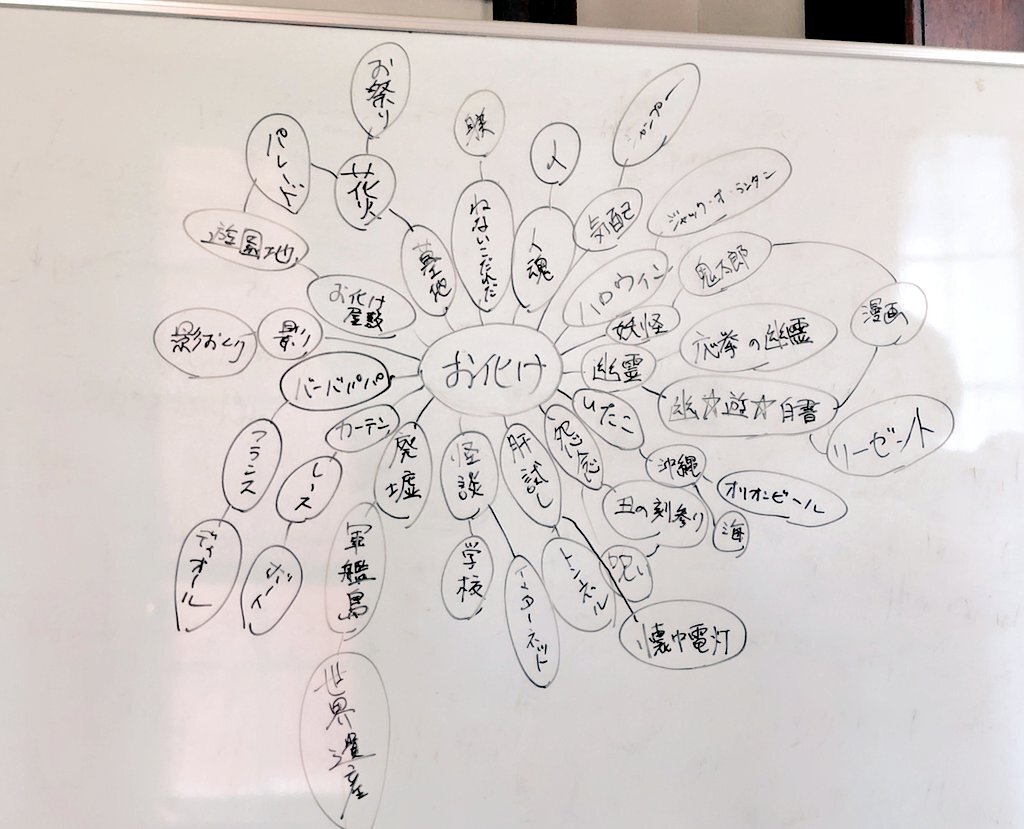 お祭り
パレード
花火
遊園地
墓地
お化け
屋敷
ねないこだれだ
人
人魂
気配
ジャック・オ・ランタン
ハロウィン
鬼太郎
妖怪
漫画
応挙の幽霊
幽霊
幽☆遊☆白書
リーゼント
お化け
影おくり
バーバパパ
カーテン
フランス
レース
ディオール
廃墟
軍艦島
世界遺産
怪談
学校
インターネット
肝試し
トンネル
懐中電灯
怨念
丑の刻参り
呪い
いたこ
沖縄
オリオンビール
海